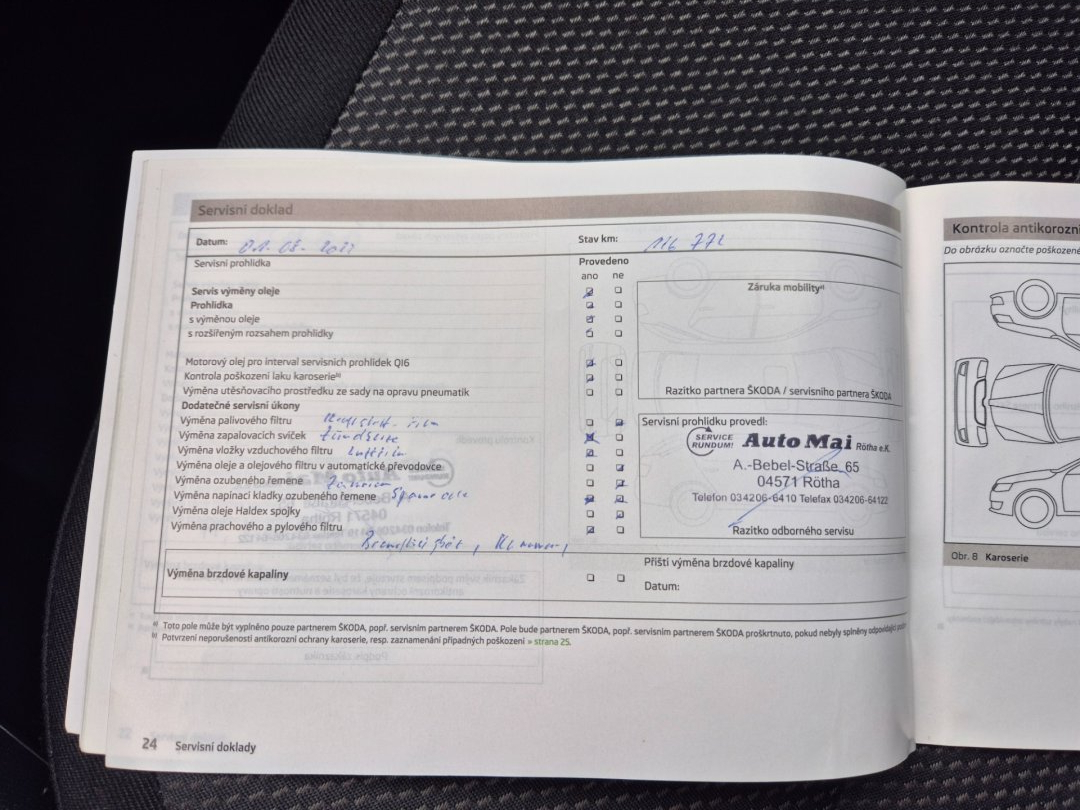 Servisní doklad
Datum:
Stav km: 116 772
Servisní prohlídka
Provedeno
ano ne
Servis výměny oleje
Prohlídka
s výměnou oleje
s rozšířeným rozsahem prohlídky
Motorový olej pro interval servisních prohlídek QI6
Kontrola poškození laku karoserie b)
Výměna utěsňovacího prostředku ze sady na opravu pneumatik
Dodatečné servisní úkony
Výměna palivového filtru
Výměna zapalovacích svíček Zündkerze
Výměna vložky vzduchového filtru Luftfilter
Výměna oleje a olejového filtru v automatické převodovce
Výměna ozubeného řemene Zahnriem
Výměna napínací kladky ozubeného řemene Spannrolle
Výměna oleje Haldex spojky
Výměna prachového a pylového filtru
Záruka mobility a)
Razítko partnera ŠKODA / servisního partnera ŠKODA
Servisní prohlídku provedl:
SERVICE RUNDUM! Auto Mai Rötha e.K.
A.-Bebel-Straße 65
04571 Rötha
Telefon 034206-6410 Telefax 034206-64122
Razítko odborného servisu
Výměna brzdové kapaliny
Příští výměna brzdové kapaliny
Datum:
a) Toto pole může být vyplněno pouze partnerem ŠKODA, popř. servisním partnerem ŠKODA. Pole bude partnerem ŠKODA, popř. servisním partnerem ŠKODA proškrtnuto, pokud nebyly splněny odpovídající
b) Potvrzení neporušenosti antikorozní ochrany karoserie, resp. zaznamenání případných poškození » strana 25.
24 Servisní doklady
Kontrola antikorozní
Do obrázku označte poškozené
Obr. 8 Karoserie